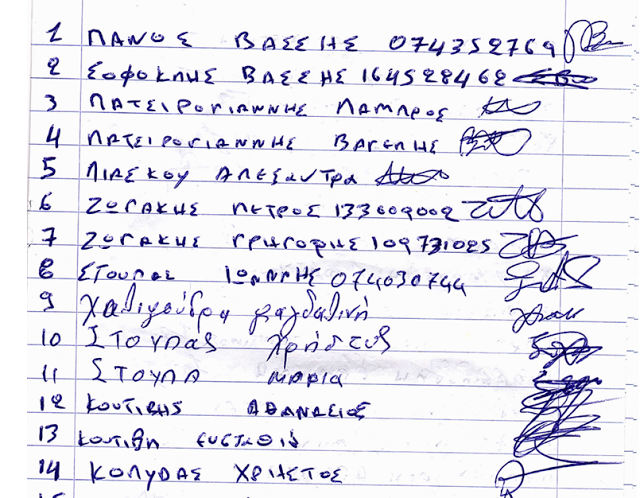 1 ΠΑΝΟΣ ΒΑΣΣΗΣ 074352769
2 ΣΟΦΟΚΛΗΣ ΒΑΣΣΗΣ 164528468
3 ΠΑΤΣΙΡΟΓΙΑΝΝΗΣ ΛΑΜΠΡΟΣ
4 ΠΑΤΣΙΡΟΓΙΑΝΝΗΣ ΒΑΓΕΛΗΣ
5 ΛΙΑΣΚΟΥ ΑΛΕΞΑΝΤΡΑ
6 ΖΩΓΑΚΗΣ ΠΕΤΡΟΣ 133609002
7 ΖΩΓΑΚΗΣ ΓΡΗΓΟΡΗΣ 109731025
8 ΣΤΟΥΠΑΣ ΙΩΑΝΝΗΣ 074030744
9
10 ΣΤΟΥΠΑΣ Χρήστος
11 ΣΤΟΥΠΑ ΜΑΡΙΑ
12 ΚΟΥΤΙΒΗΣ ΑΘΑΝΑΣΙΟΣ
13 ΚΟΥΤΙΒΗ ΕΥΣΤΑΘΙΑ
14 ΚΟΛΥΔΑΣ ΧΡΗΣΤΟΣ